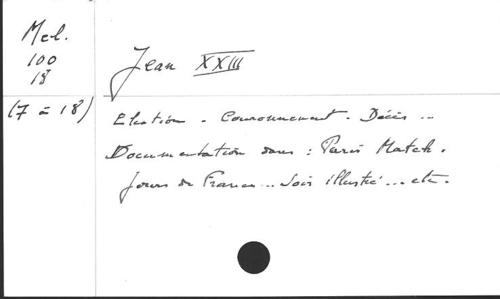 Mel.
100
18
(7 à 18)
Jean XXIII
Election . Couronnement . Décès ...
Documentation dans : Paris Match .
Jours de France ... Soir illustré ... etc.